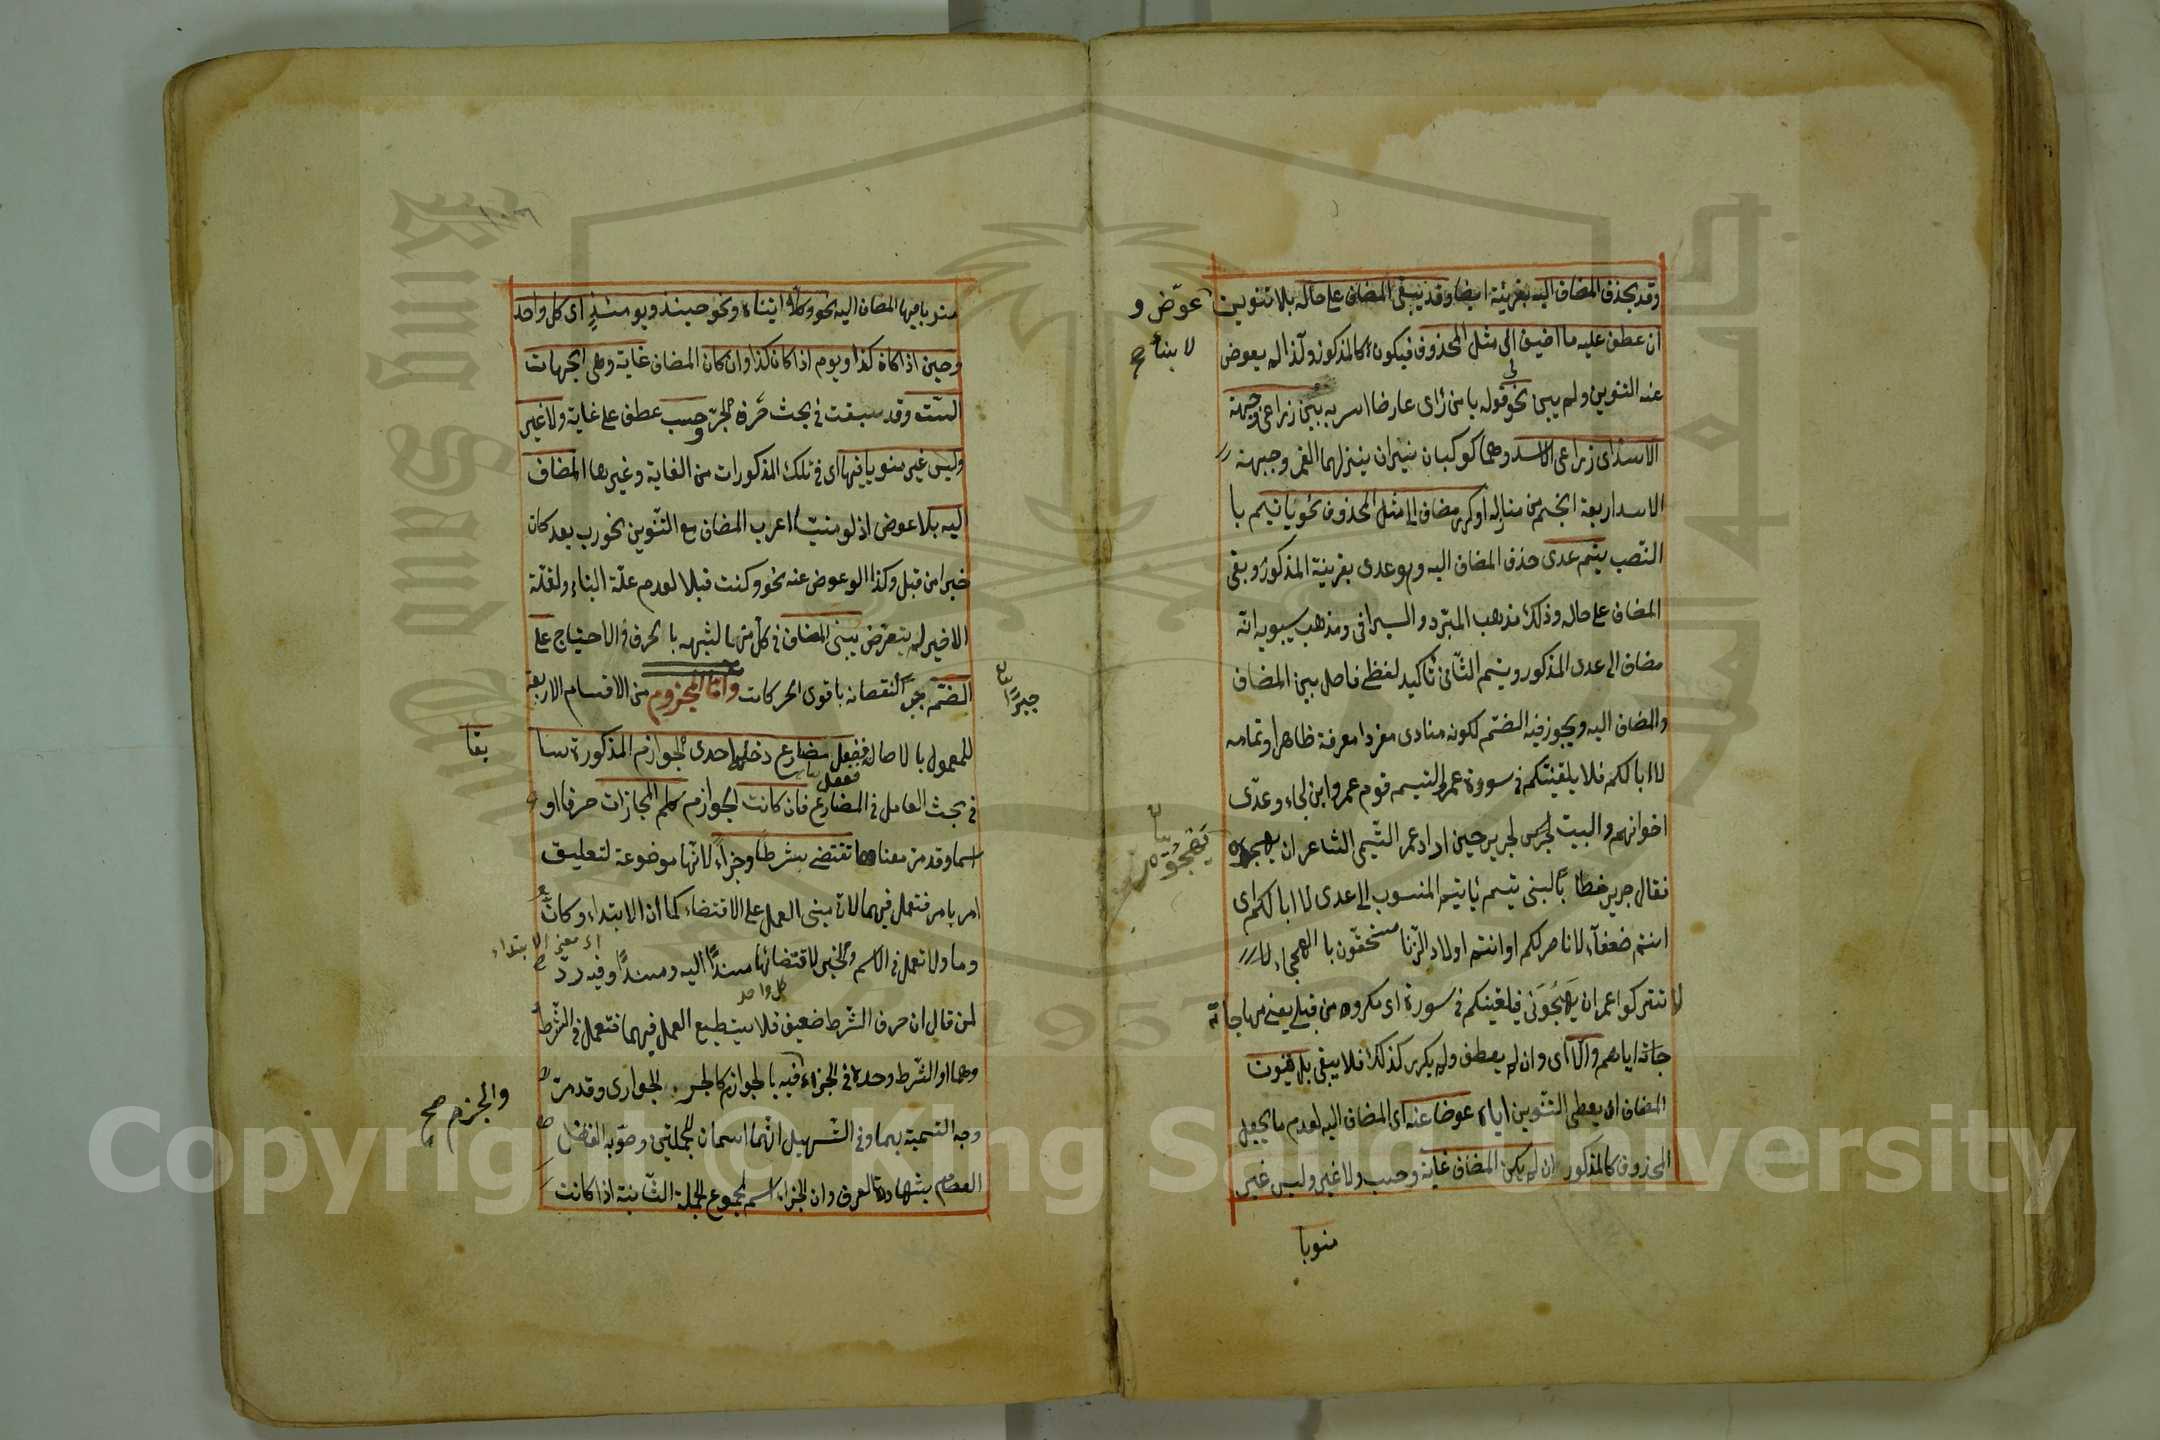 وقد يحذف المضاف اليه بقرينة ايضا وقد يبقى المضاف على حاله بلا تنوين
عوّض و
لا بناء صح
ان عطف عليه ما اضيف الى مثل المحذوف فيكون كالمذكور ولذا لم يعوض
عنه التنوين ولم يبن نحو قوله يا من رأى عارضا اسر به بين ذراعى وجبهة
الاسد اى ذراعى الاسد وهما كوكبان نيران ينزلهما القمر وجبهة
الاسد اربعة انجم من منازله او كرر مضاف الى مثل المحذوف نحو يا تيم با
النصب يتم عدى حذف المضاف اليه وهو عدى بقرينة المذكور وبقى
المضاف على حاله وذلك مذهب المبرّد والسيرافى ومذهب سيبويه انّه
مضاف الى عدى المذكور وتيم الثّانى تأكيد لفظى فاصل بين المضاف
والمضاف اليه ويجوز فيه الضمّ لكونه منادى مفردا معرفة ظاهرا وتمامه
لا ابا لكم فلا يلقينّكم فى سوءة عمر والتيم قوم عمرو ابن لجاء وعدّى
اخوانهم والبيت لجرير حين اراد عمر التّيمى الشاعر ان يهجوه
يَهْجُوَهُ
بيان
فقال جرير خطابًا لبنى تيم يا تيم المنسوب الى عدى لا ابا لكم اى
انتم ضعفآء لا ناصر لكم او انتم اولاد الزّنا مستحقّون با الهجاء لا
لا تتركوا عمر ان يَهْجُوَنى فيلقينكم فى سورة اى مكروه من قبلى يعنى مهاجاته
جاته اياهم والّا اى وان لم يعطف ولم يكرر كذلك فلا يبقى بل ينون
المضاف اى يعطى التنّوين اياه عوضا عنه اى المضاف اليه لعدم ما يجعل
المحذوف كالمذكور ان لم يكن المضاف غاية وحسب ولا غير وليس غير
منويا
منويا فيها المضاف اليه نحو وكلّا اتيناه ونحو حينئذ ويومئذٍ اى كل واحد
وحين اذا كان كذا ويوم اذا كان كذا وان كان المضاف غاية وهى الجهات
السّت وقد سبقت فى بحث حرف الجرّ وحسب عطف على غاية ولا غير
وليس غير منويا فيها اى فى تلك المذكورات من الغاية وغيرها المضاف
اليه بلا عوض اذ لو منسيّا اعرب المضاف مع التّنوين نحو رب بعد كان
خيرا من قبل وكذا لو عوض عنه نحو وكنت قبلا لعدم علّة البناء ولقلّة
الاخير لم يتعرّض يبنى المضاف فى كلّ منها لشبهه با لحرف فى الاحتياج على
الضمّ جبرًا لنقصانه باقوى الحركات وامّا المجزوم من الاقسام الاربعة
جبرًا
بيان
للمعمول بالاصالة ففعل مضارع دخله احدى الجوازم المذكورة سا
بقا
فى بحث العامل فى المضارع فان كانت الجوازم كلم المجازات حرفا او
اسما وقد مر معناها تقتضى شرطا وجزاء لانّها موضوعة لتعليق
امر بامر فتعمل فيهما لانّ مبنى العمل على الاقتضاء كما ان الابتداء وكانّ
اى معنى الابتداء
وما ولا تعمل فى الاسم والخبر لاقتضائها مسندًا اليه ومسندًا وفيه ردّ
كل واحد
لمن قال ان حرف الشّرط ضعيف فلا يستطيع العمل فيهما فتعمل فى الشّرط
وهما او الشّرط وحده فى الجزاء فيه بالجوازم كالجر الجوارى وقد مرّ
والجزم صح
وجه التسمية بهما وفى التّسهيل انّهما اسمان للجملتين وصوّبه الفاضل
العصام بشهادة العرف وان الجزاء اسم لمجموع الجملة الثّانية اذا كانت
Copyright © King Saud University
King Saud University
1957